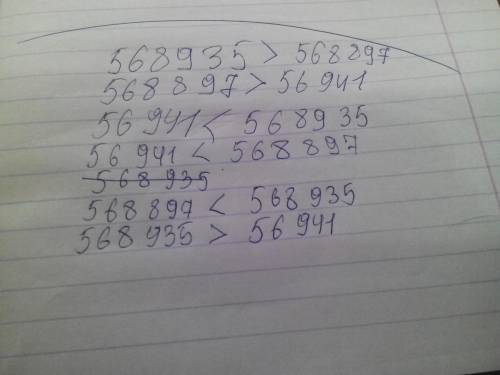 568935 > 568897
568897 > 56941
56941 < 568935
56941 < 568897
568935
568897 < 568935
568935 > 56941